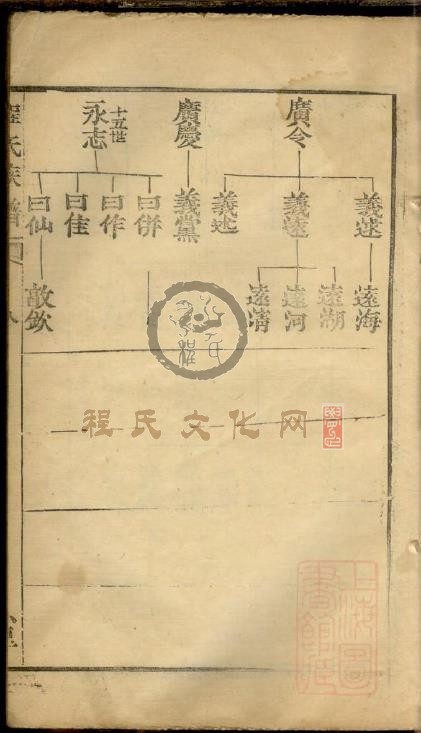 廣令
廣慶
十五世
永志
義迷
義遠
義述
義黨
曰併
曰作
曰佳
曰仙
遠海
遠湖
遠河
遠清
敬欽
程氏族譜
程氏文化网
上海圖書館藏